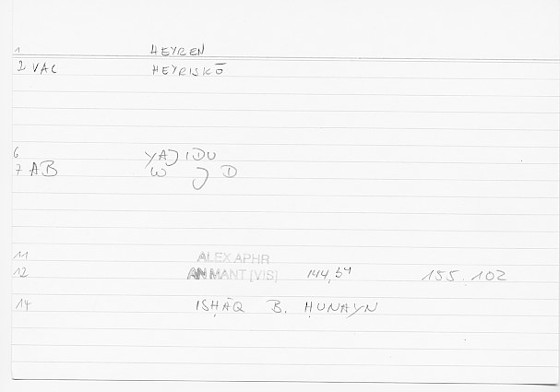 1 HEYREN
2 VAC HEYRISKŌ
6 YAJIDU
7 AB W J D
11 ALEX APHR
12 AN MANT [VIS] 144,31 155.102
14 ISḤĀQ B. ḤUNAYN